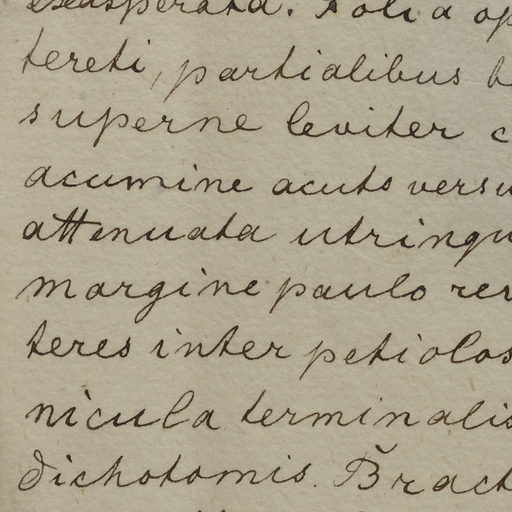 exasperata. Folia op
tereti, partialibus b
superne leviter c
acumine acuto versu
attenuata utrinqu
margine paulo rev
teres inter petiolos
nicula terminalis
dichotomis. Bract